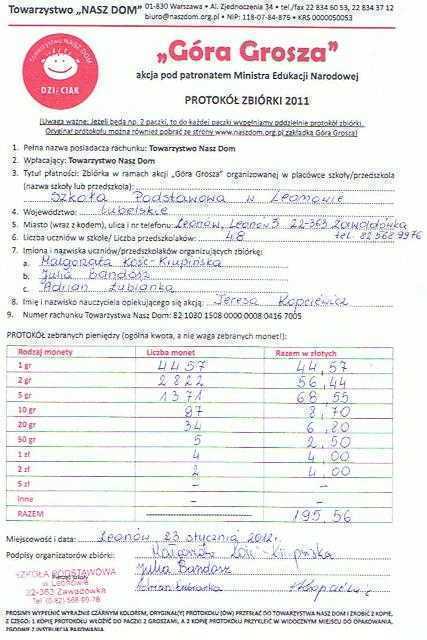 Towarzystwo „NASZ DOM" 01-830 Warszawa • Al. Zjednoczenia 34 • tel./fax 22 834 60 53, 22 834 37 12
biuro@naszdom.org.pl • NIP: 118-07-84-876 • KRS 0000050053
TOWARZYSTWO NASZ DOM
DZIĘCIAK
„Góra Grosza"
akcja pod patronatem Ministra Edukacji Narodowej
PROTOKÓŁ ZBIÓRKI 2011
(Uwaga ważne: Jeżeli będą np. 2 paczki, to do każdej paczki wypełniamy oddzielnie protokół zbiórki.
Oryginał protokołu można również pobrać ze strony www.naszdom.org.pl zakładka Góra Grosza)
1. Pełna nazwa posiadacza rachunku: Towarzystwo Nasz Dom
2. Wpłacający: Towarzystwo Nasz Dom
3. Tytuł płatności: Zbiórka w ramach akcji „Góra Grosza" organizowanej w placówce szkoły/przedszkola
(nazwa szkoły lub przedszkola):
Szkoła Podstawowa w Leonowie
4. Województwo: lubelskie
5. Miasto (wraz z kodem), ulica i nr telefonu: Leonów, Leonów 5 22-363 Zawadówka
6. Liczba uczniów w szkole/ Liczba przedszkolaków: 48 tel. 82 568 9976
7. Imiona i nazwiska uczniów/przedszkolaków organizujących zbiórkę:
a. Małgorzata Kość-Krupińska
b. Julia Bandosz
c. Adrian Łubianka
8. Imię i nazwisko nauczyciela opiekującego się akcją: Teresa
9. Numer rachunku Towarzystwa Nasz Dom: 82 1030 1508 0000 0008 0416 7005
PROTOKÓŁ zebranych pieniędzy (ogólna kwota, a nie waga zebranych monet!):
Rodzaj monety Liczba monet Razem w złotych
1 gr 4457 44,57
2 gr 2822 56,44
5 gr 1371 68,55
10 gr 87 8,70
20 gr 34 6,80
50 gr 5 2,50
1 zł 4 4,00
2 zł 2 4,00
5 zł - -
Inne - -
RAZEM 195,56
Miejscowość i data: Leonów, 23 stycznia 2012r.
Podpisy organizatorów zbiórki: Małgorzata
SZKOŁA PODSTAWOWA Julia Bandosz
w Leonowie
Pieczęć szkoły
22-363 Zawadówka
Tel. (0-82) 568-99-76
PROSIMY WYPEŁNIĆ WYRAŹNIE CZARNYM KOLOREM, ORYGINAŁ(Y) PROTOKOŁU (ÓW) PRZESŁAĆ DO TOWARZYSTWA NASZ DOM I ZROBIĆ 2 KOPIE,
Z CZEGO: 1 KOPIĘ PROTOKOŁU WŁOŻYĆ DO PACZKI Z GROSZAMI, A 2 KOPIĘ PROTOKOŁU PRZYKLEIĆ W WIDOCZNYM MIEJSCU DO OPAKOWANIA,
ZGODNIE Z INSTRUKCJĄ PAKOWANIA